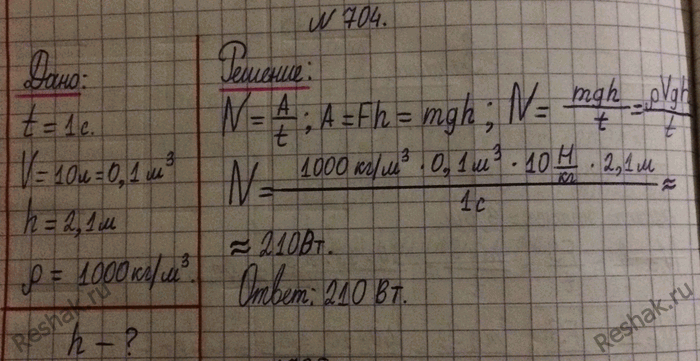 N 704.
Дано:
t = 1с.
V = 10л = 0,1 м³
h = 2,1м
ρ = 1000 кг/м³.
h - ?
Решение:
N = A/t ; A = Fh = mgh ; N = mgh/t = ρVgh/t
N = 1000 кг/м³ · 0,1м³ · 10 Н/кг · 2,1м / 1с ≈
≈ 210Вт.
Ответ: 210 Вт.
Reshak.ru
Reshak.ru